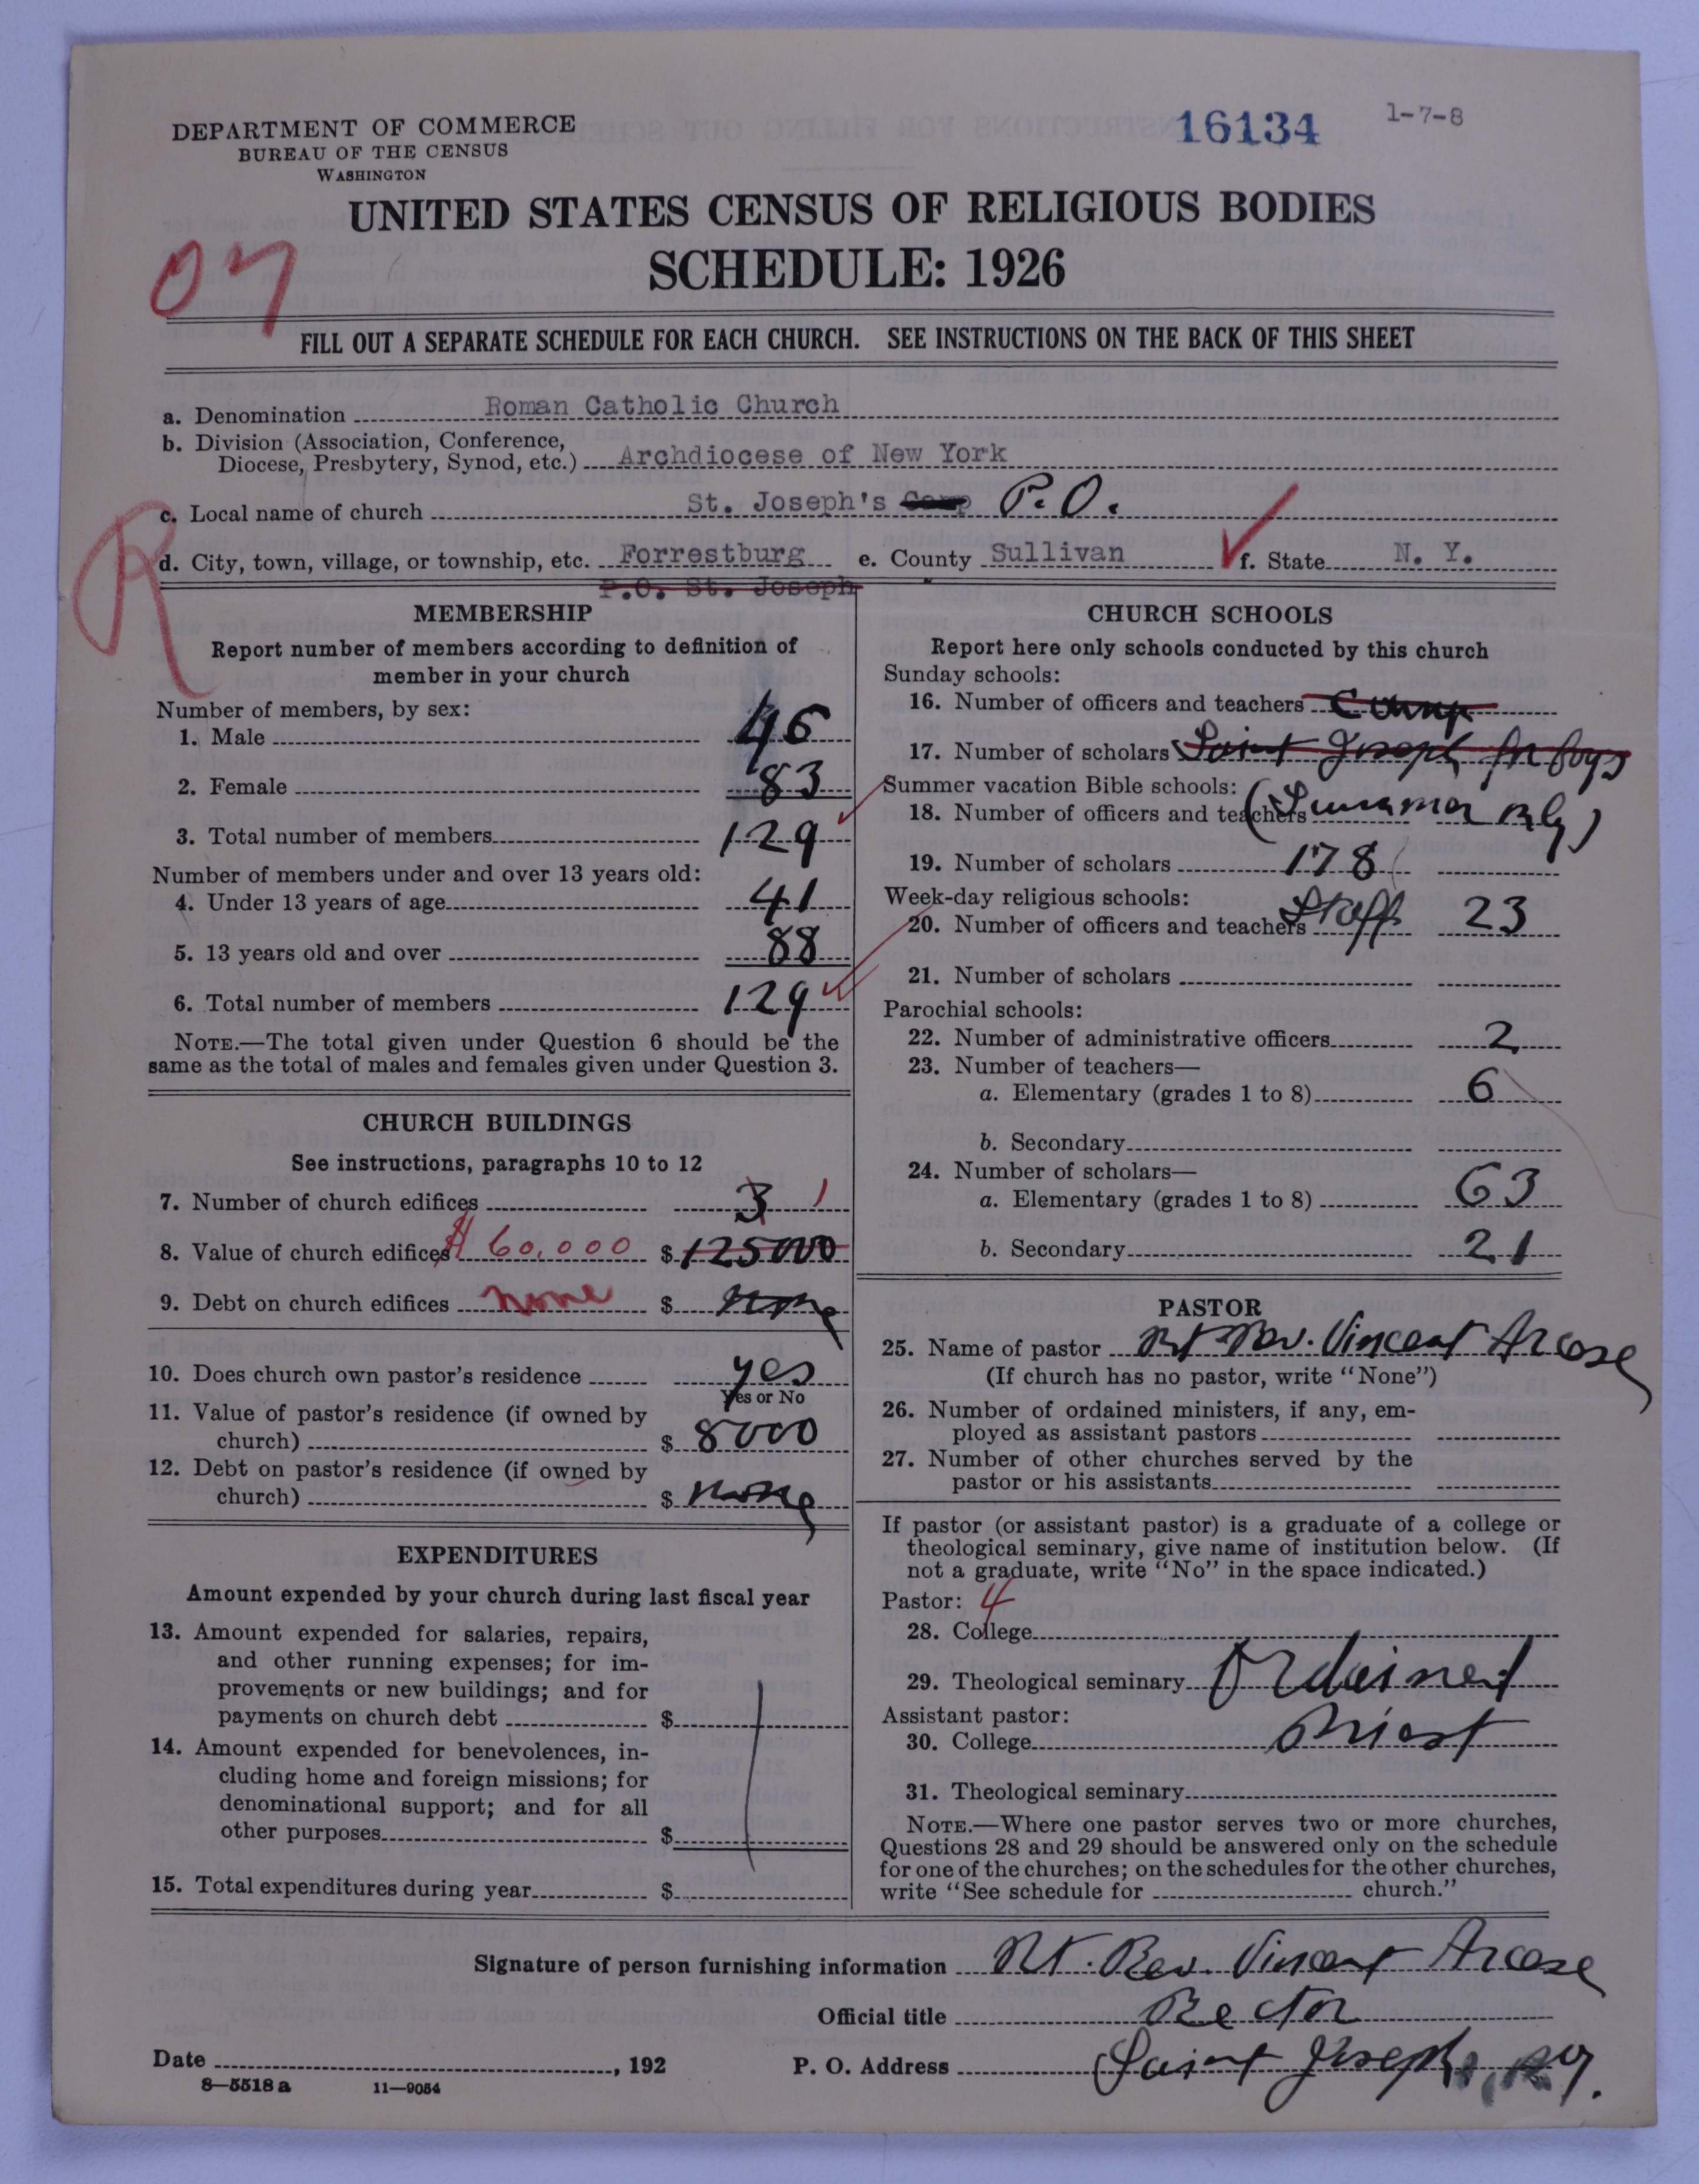 DEPARTMENT OF COMMERCE
BUREAU OF THE CENSUS
WASHINGTON
16134
1-7-8
UNITED STATES CENSUS OF RELIGIOUS BODIES
SCHEDULE: 1926
07
FILL OUT A SEPARATE SCHEDULE FOR EACH CHURCH. SEE INSTRUCTIONS ON THE BACK OF THIS SHEET
a. Denomination Roman Catholic Church
b. Division (Association, Conference,
Diocese, Presbytery, Synod, etc.) Archdiocese of New York
c. Local name of church St. Joseph's Camp P.O.
R
d. City, town, village, or township, etc. Forrestburg e. County Sullivan f. State N. Y.
P.O. St. Joseph
MEMBERSHIP
Report number of members according to definition of
member in your church
Number of members, by sex:
1. Male 46
2. Female 83
3. Total number of members 129
Number of members under and over 13 years old:
4. Under 13 years of age 41
5. 13 years old and over 88
6. Total number of members 129
NOTE.—The total given under Question 6 should be the
same as the total of males and females given under Question 3.
CHURCH BUILDINGS
See instructions, paragraphs 10 to 12
7. Number of church edifices 3 1
8. Value of church edifices $ 60,000 $ 125000
9. Debt on church edifices none $ none
10. Does church own pastor's residence yes
Yes or No
11. Value of pastor's residence (if owned by
church) $ 8000
12. Debt on pastor's residence (if owned by
church) $ none
EXPENDITURES
Amount expended by your church during last fiscal year
13. Amount expended for salaries, repairs,
and other running expenses; for im-
provements or new buildings; and for
payments on church debt $
14. Amount expended for benevolences, in-
cluding home and foreign missions; for
denominational support; and for all
other purposes $
15. Total expenditures during year $
CHURCH SCHOOLS
Report here only schools conducted by this church
Sunday schools:
16. Number of officers and teachers Camp
17. Number of scholars Saint Joseph for boys
Summer vacation Bible schools:
18. Number of officers and teachers (Summer only)
19. Number of scholars 178
Week-day religious schools:
20. Number of officers and teachers Staff 23
21. Number of scholars
Parochial schools:
22. Number of administrative officers 2
23. Number of teachers—
a. Elementary (grades 1 to 8) 6
b. Secondary
24. Number of scholars—
a. Elementary (grades 1 to 8) 63
b. Secondary 21
PASTOR
25. Name of pastor Rt Rev. Vincent Arcese
(If church has no pastor, write "None")
26. Number of ordained ministers, if any, em-
ployed as assistant pastors
27. Number of other churches served by the
pastor or his assistants
If pastor (or assistant pastor) is a graduate of a college or
theological seminary, give name of institution below. (If
not a graduate, write "No" in the space indicated.)
Pastor: 4
28. College
29. Theological seminary Ordained
Assistant pastor:
30. College Priest
31. Theological seminary
NOTE.—Where one pastor serves two or more churches,
Questions 28 and 29 should be answered only on the schedule
for one of the churches; on the schedules for the other churches,
write "See schedule for church."
Signature of person furnishing information Rt. Rev. Vincent Arcese
Official title Rector
Date , 192 P. O. Address Saint Joseph, NY.
8—5518 a 11—9054